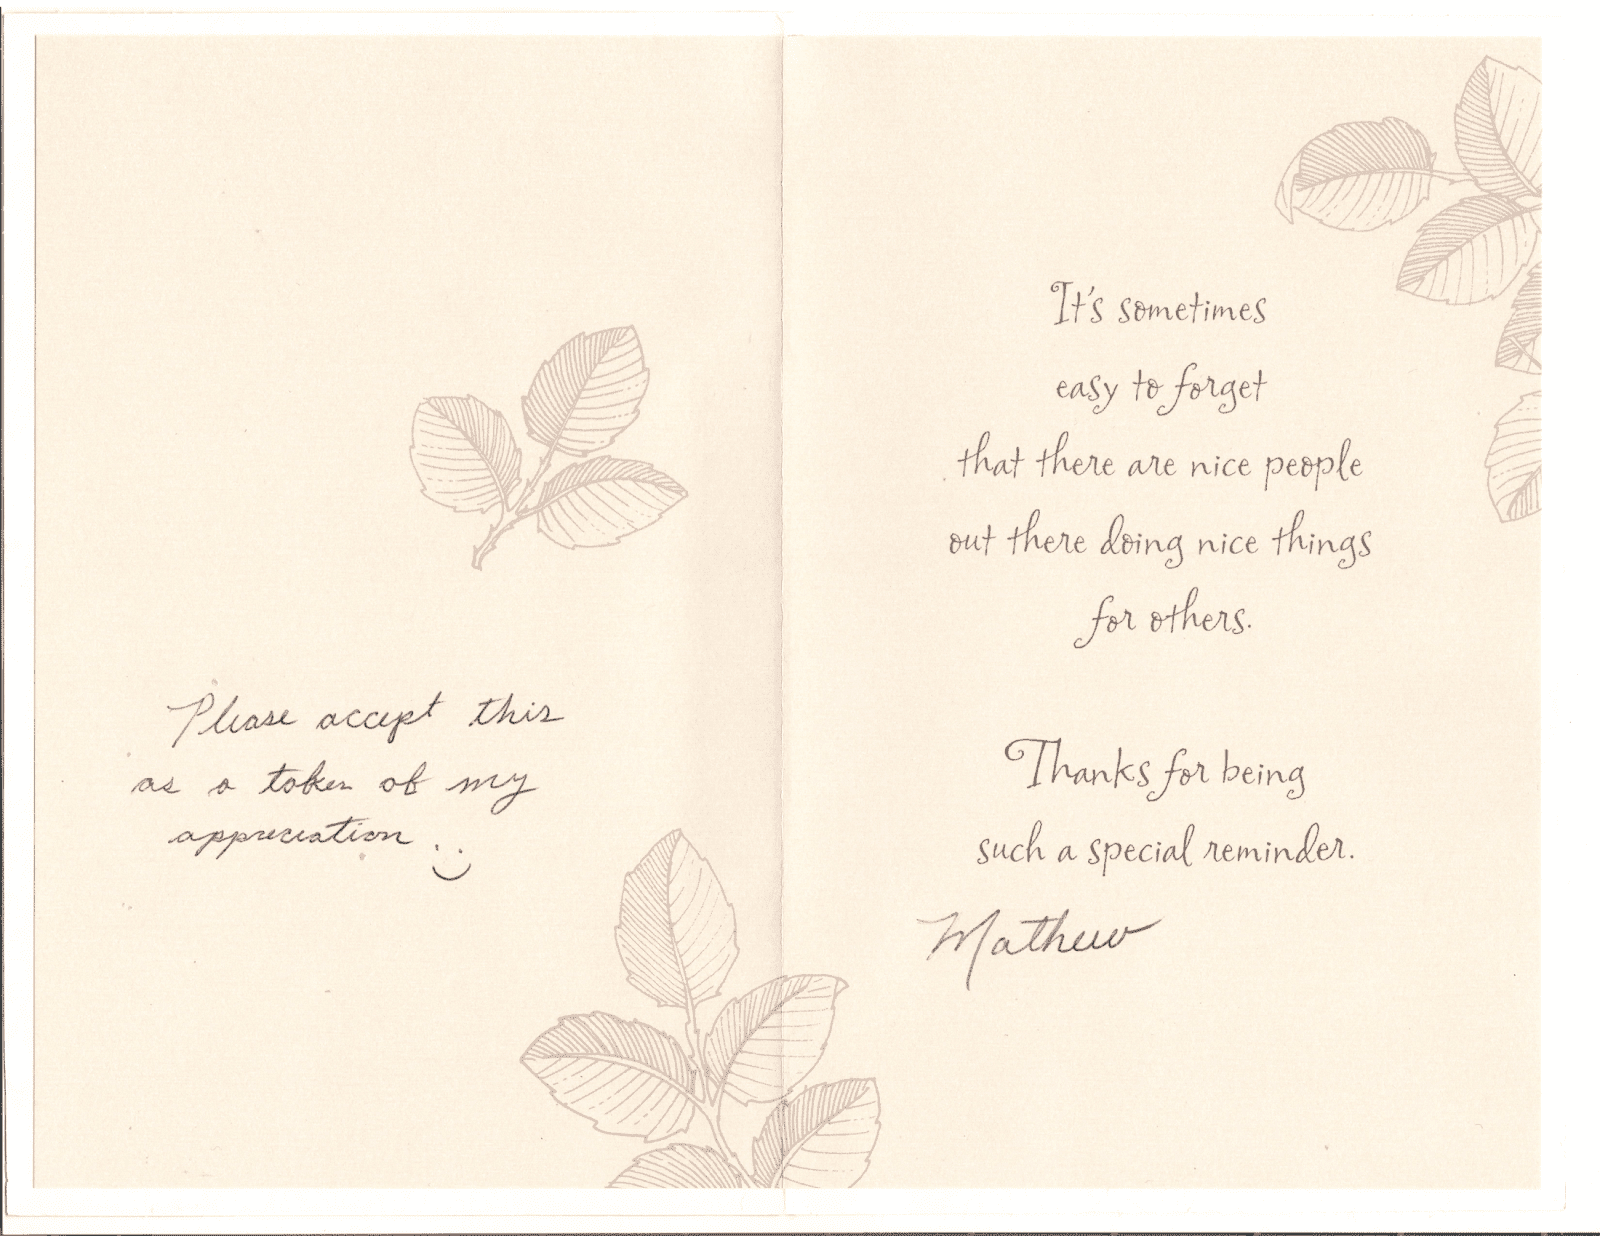 Please accept this
as a token of my
appreciation
It's sometimes
easy to forget
that there are nice people
out there doing nice things
for others.
Thanks for being
such a special reminder.
Mathew